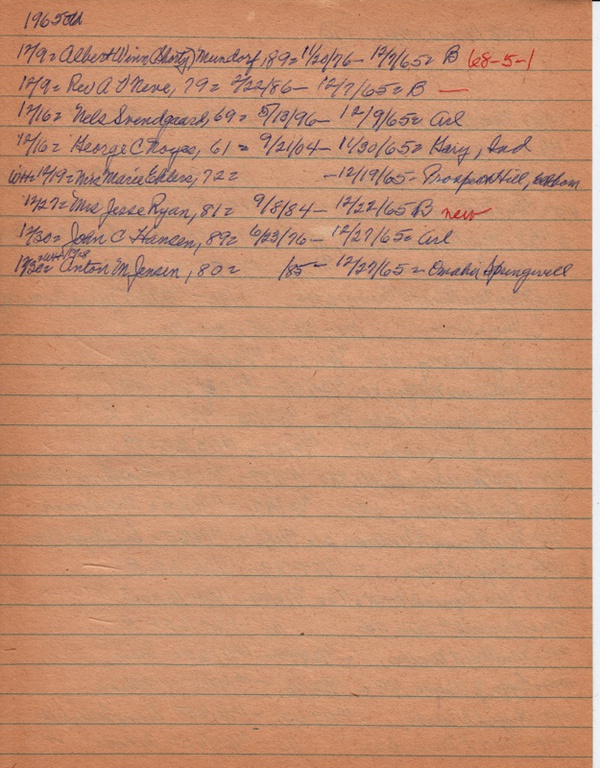 1965
12/9= Albert Winn (Shorty) Mundorf, 89= 11/20/76- 12/7/65= B 68-5-1
12/9= Rev A J Neve, 79= 2/22/86- 12/7/65= B —
12/16= Nels Svendgaard, 69= 5/13/96- 12/9/65= Arl
12/16= George C Noyes, 61= 9/21/04- 11/30/65= Gary, Ind
WH 12/19= Mrs Marie Ehlers, 72= -12/19/65- Prospect Hill,
12/27= Mrs Jesse Ryan, 81= 9/8/84- 12/22/65 B new
12/30= John C Hansen, 89= 6/23/76- 12/27/65= Arl
12/30= Anton M Jensen, 80= /85- 12/27/65= Omaha Springwell